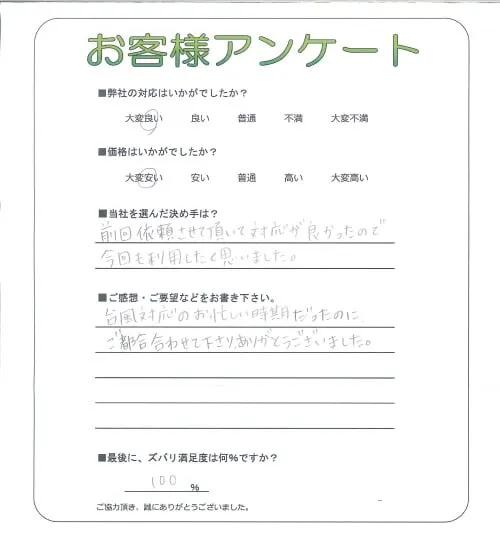 お客様アンケート
■弊社の対応はいかがでしたか？
大変良い 良い 普通 不満 大変不満
■価格はいかがでしたか？
大変安い 安い 普通 高い 大変高い
■当社を選んだ決め手は？
前回依頼させて頂いて対応が良かったので
今回も利用したく思いました。
■ご感想・ご要望などをお書き下さい。
台風対応のお忙しい時期だったのに
ご都合合わせて下さり、ありがとうございました。
■最後に、ズバリ満足度は何%ですか？
100 %
ご協力頂き、誠にありがとうございました。